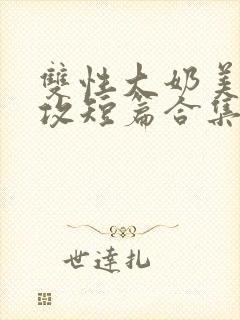 雙性大奶美
攻短篇合集
世達扎